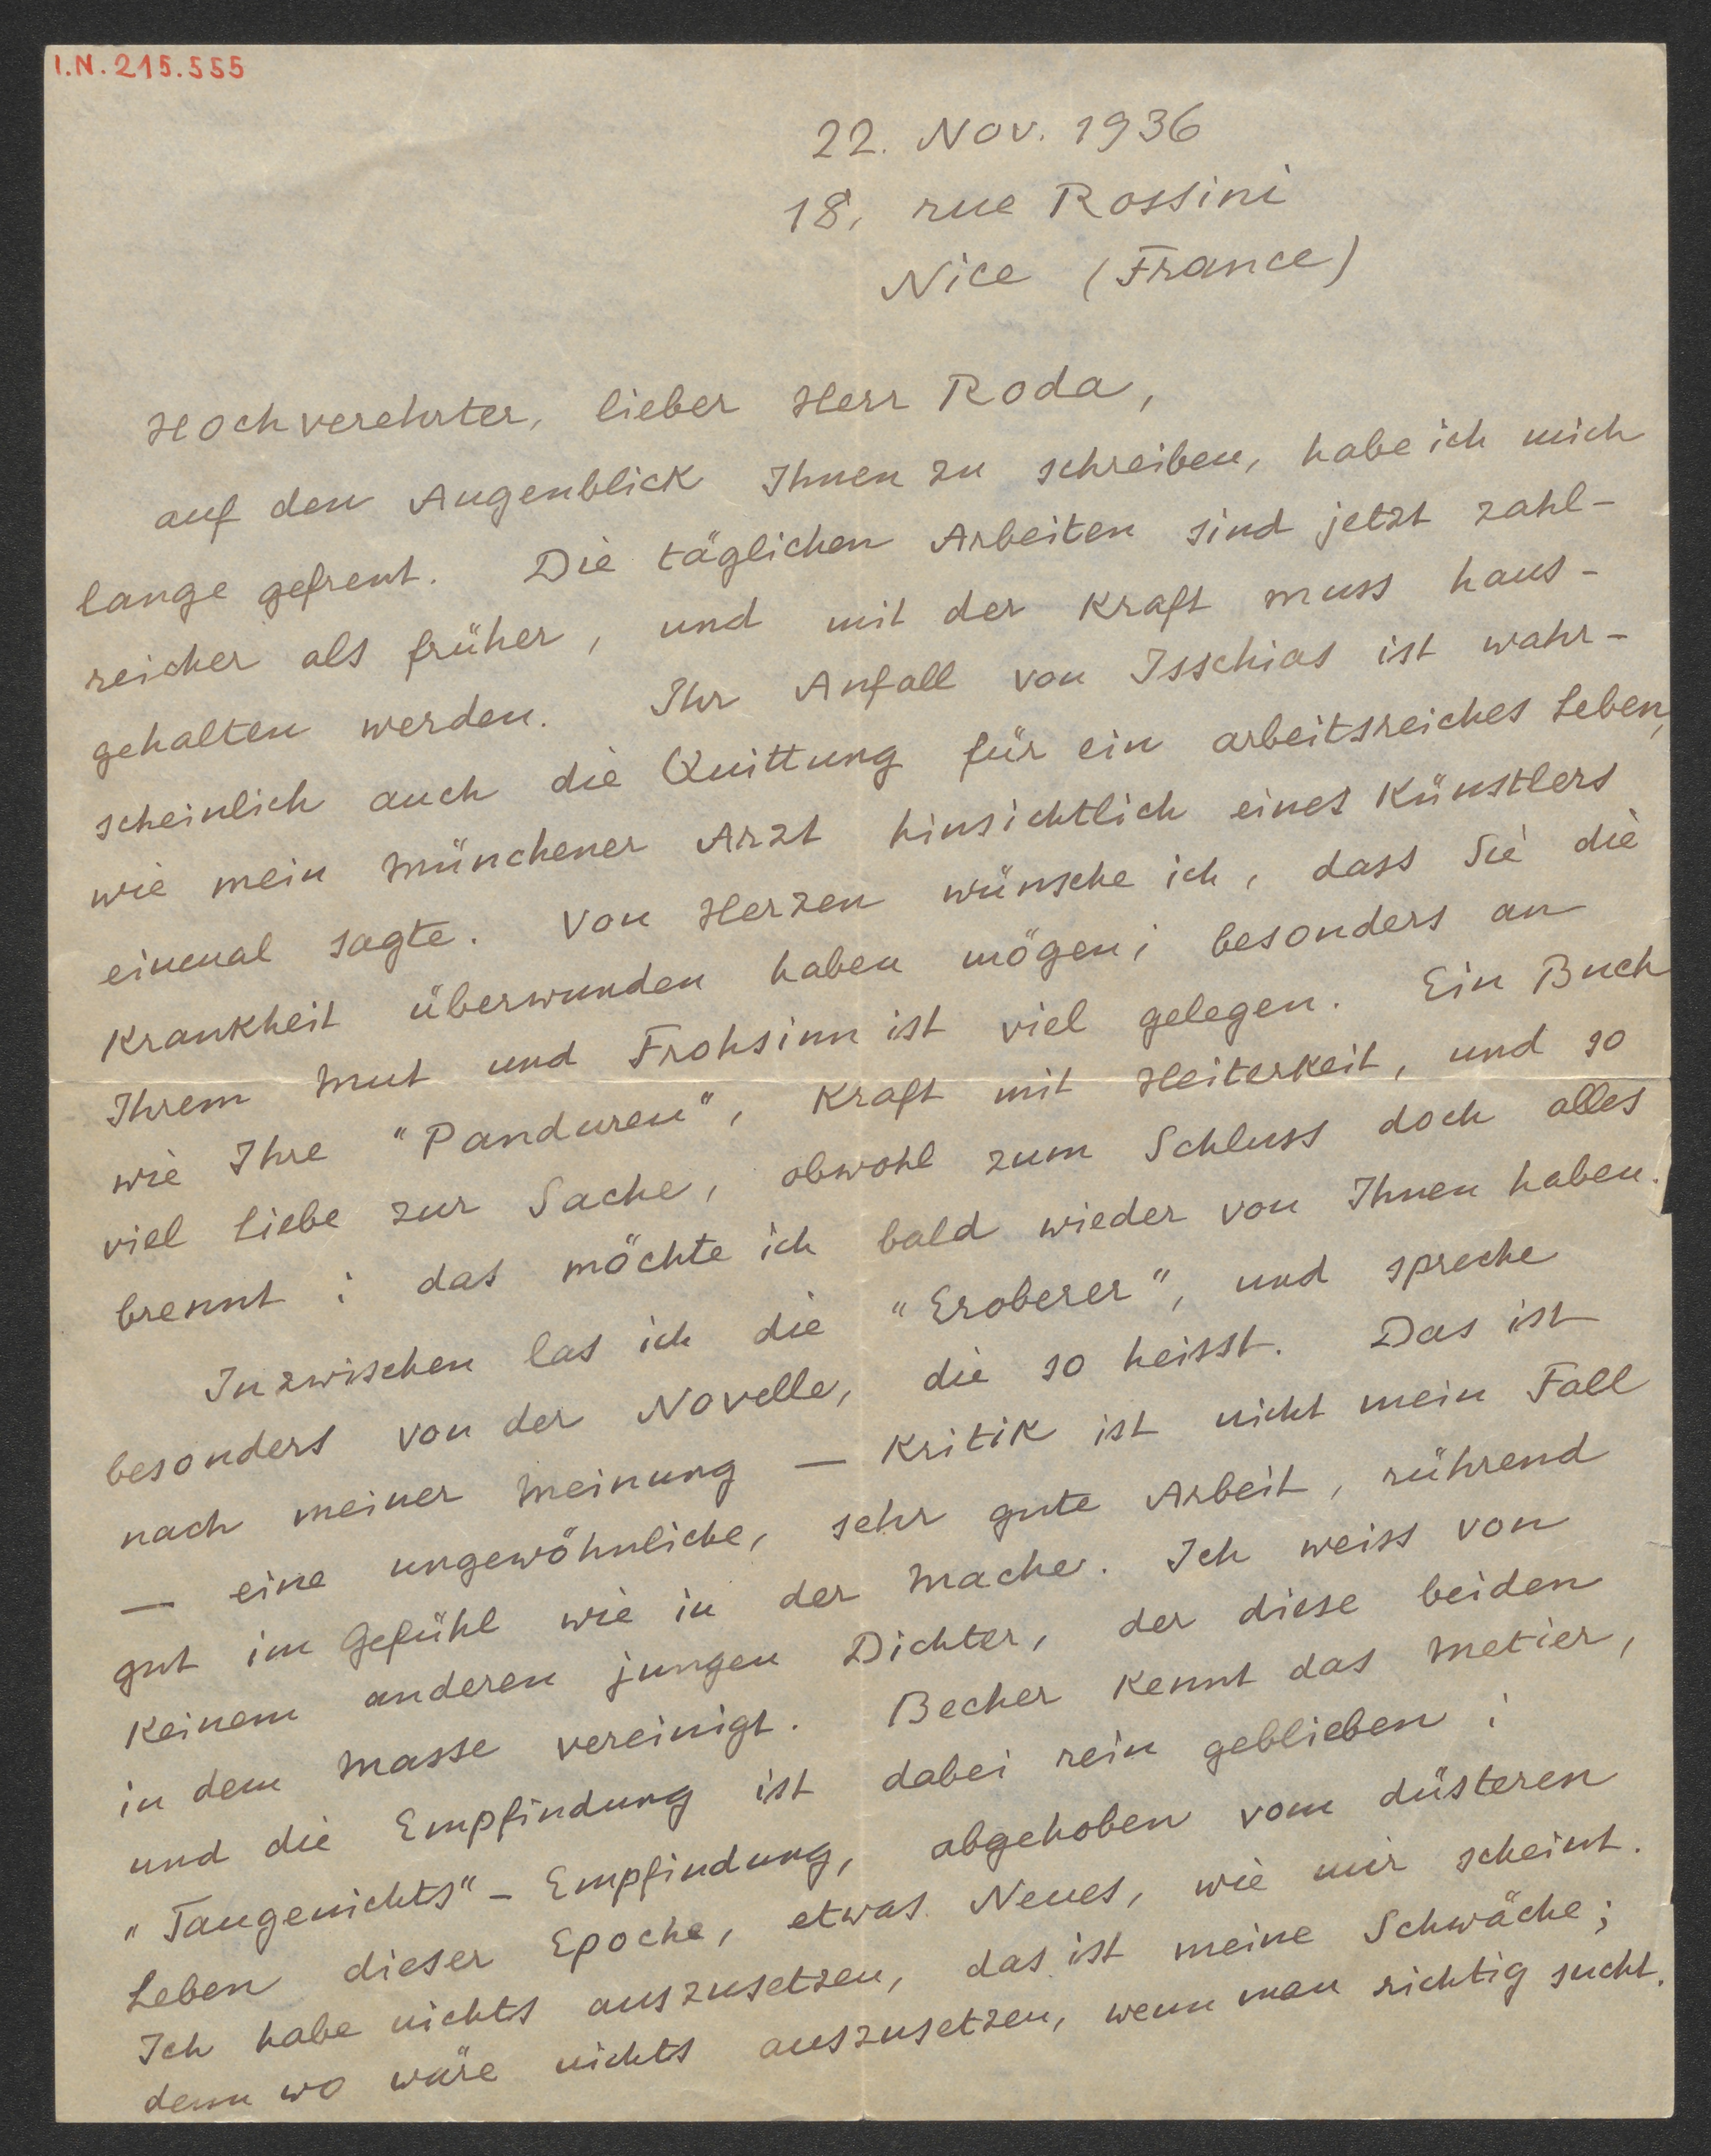 I.N. 215.555
22. Nov. 1936
18, rue Rossini
Nice (France)
Hochverehrter, lieber Herr Roda,
auf den Augenblick Ihnen zu schreiben, habe ich mich
lange gefreut. Die täglichen Arbeiten sind jetzt zahl-
reicher als früher, und mit der Kraft muss haus-
gehalten werden. Ihr Anfall von Isschias ist wahr-
scheinlich auch die Quittung für ein arbeitsreiches Leben,
wie mein Münchener Arzt hinsichtlich eines Künstlers
einmal sagte. Von Herzen wünsche ich, dass Sie die
Krankheit überwunden haben mögen; besonders an
Ihrem Mut und Frohsinn ist viel gelegen. Ein Buch
wie Ihre "Panduren", Kraft mit Heiterkeit, und so
viel Liebe zur Sache, obwohl zum Schluss doch alles
brennt: das möchte ich bald wieder von Ihnen haben.
Inzwischen las ich die "Eroberer", und spreche
besonders von der Novelle, die so heisst. Das ist
nach meiner Meinung — Kritik ist nicht mein Fall
— eine ungewöhnliche, sehr gute Arbeit, rührend
gut im Gefühl wie in der Mache. Ich weiss von
keinem anderen jungen Dichter, der diese beiden
in dem Masse vereinigt. Becher kennt das Metier,
und die Empfindung ist dabei rein geblieben:
"Taugenichts"-Empfindung, abgehoben vom düsteren
Leben dieser Epoche, etwas Neues, wie mir scheint.
Ich habe nichts auszusetzen, das ist meine Schwäche;
denn wo wäre nichts auszusetzen, wenn man richtig sucht.